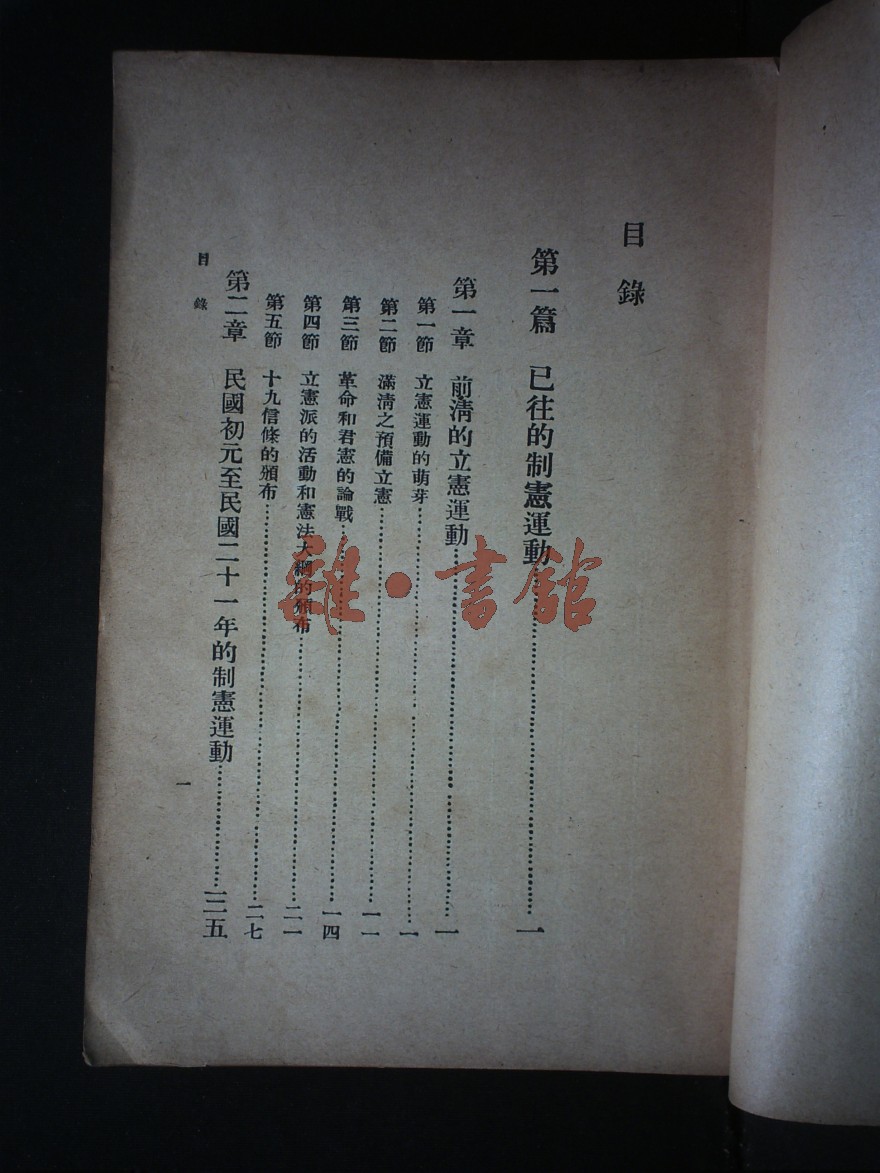 目錄
第一篇 已往的制憲運動……一
第一章 前淸的立憲運動……一
第一節 立憲運動的萌芽……一
第二節 滿淸之預備立憲……一一
第三節 革命和君憲的論戰……一四
第四節 立憲派的活動和憲法大綱的頒布……二一
第五節 十九信條的頒布……二七
第二章 民國初元至民國二十一年的制憲運動……三五
目錄
一
雜·書館